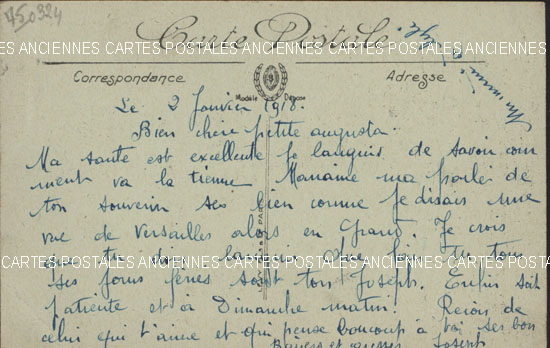 750324
Carte Postale
CARTES POSTALES ANCIENNES CARTES POSTALES ANCIENNES CARTES POSTALES
Correspondance
Adresse
Modèle Déposé
Le 2 Janvier 1918.
Bien chère petite augusta.
Ma santé est excellente je languis de savoir com
ment va la tienne Maname ma parlé de
ton souvenir tes bien comme je disais une
vue de Versailles alors en Grand. Je crois
PARIS
CARTES POSTALES ANCIENNES CARTES POSTALES ANCIENNES CARTES POSTALES
ton Joseph. Enfin soit
patiente et à Dimanche matin. Reçois de
celui qui t'aime et qui pense beaucoup à toi ses bon
Baisers et caresses Joseph